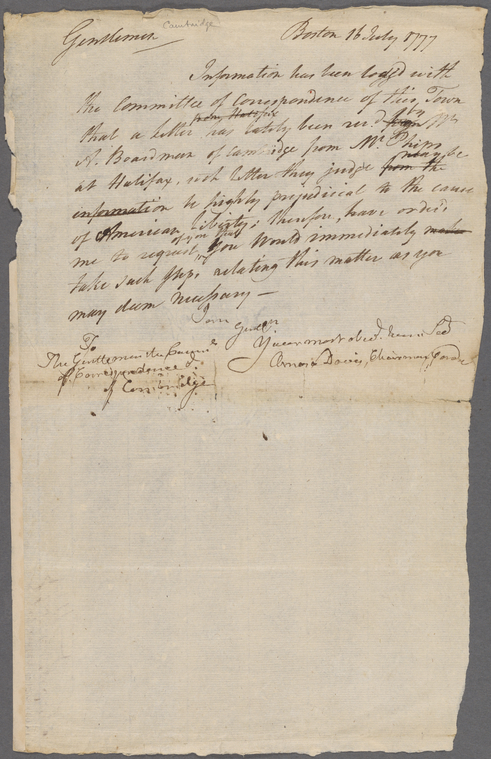 Cambridge
Gentlemen Boston 16 July 1777
Information has been lodged with
the Committee of Correspondence of this Town
from Halifax
that a letter has lately been recd from by Mr
A. Boardman of Cambridge from Mr. Phips
at Halifax, wch letter they judge from the may be
information be highly prejudicial to the cause
of American Liberty; therefore, have orderd
me to request of you you would immediately make
take such steps relating this matter as you
may deem necessary —
I am
Gentn
To Your most obedt. hum Sert
The Gentlemen the Commee
of Correspondence &c Chairman
of Cambridge